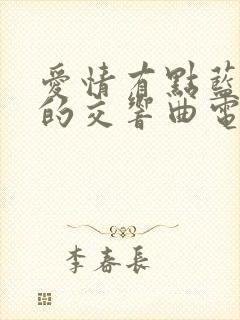 愛情有點藍
的交響曲電
李春長